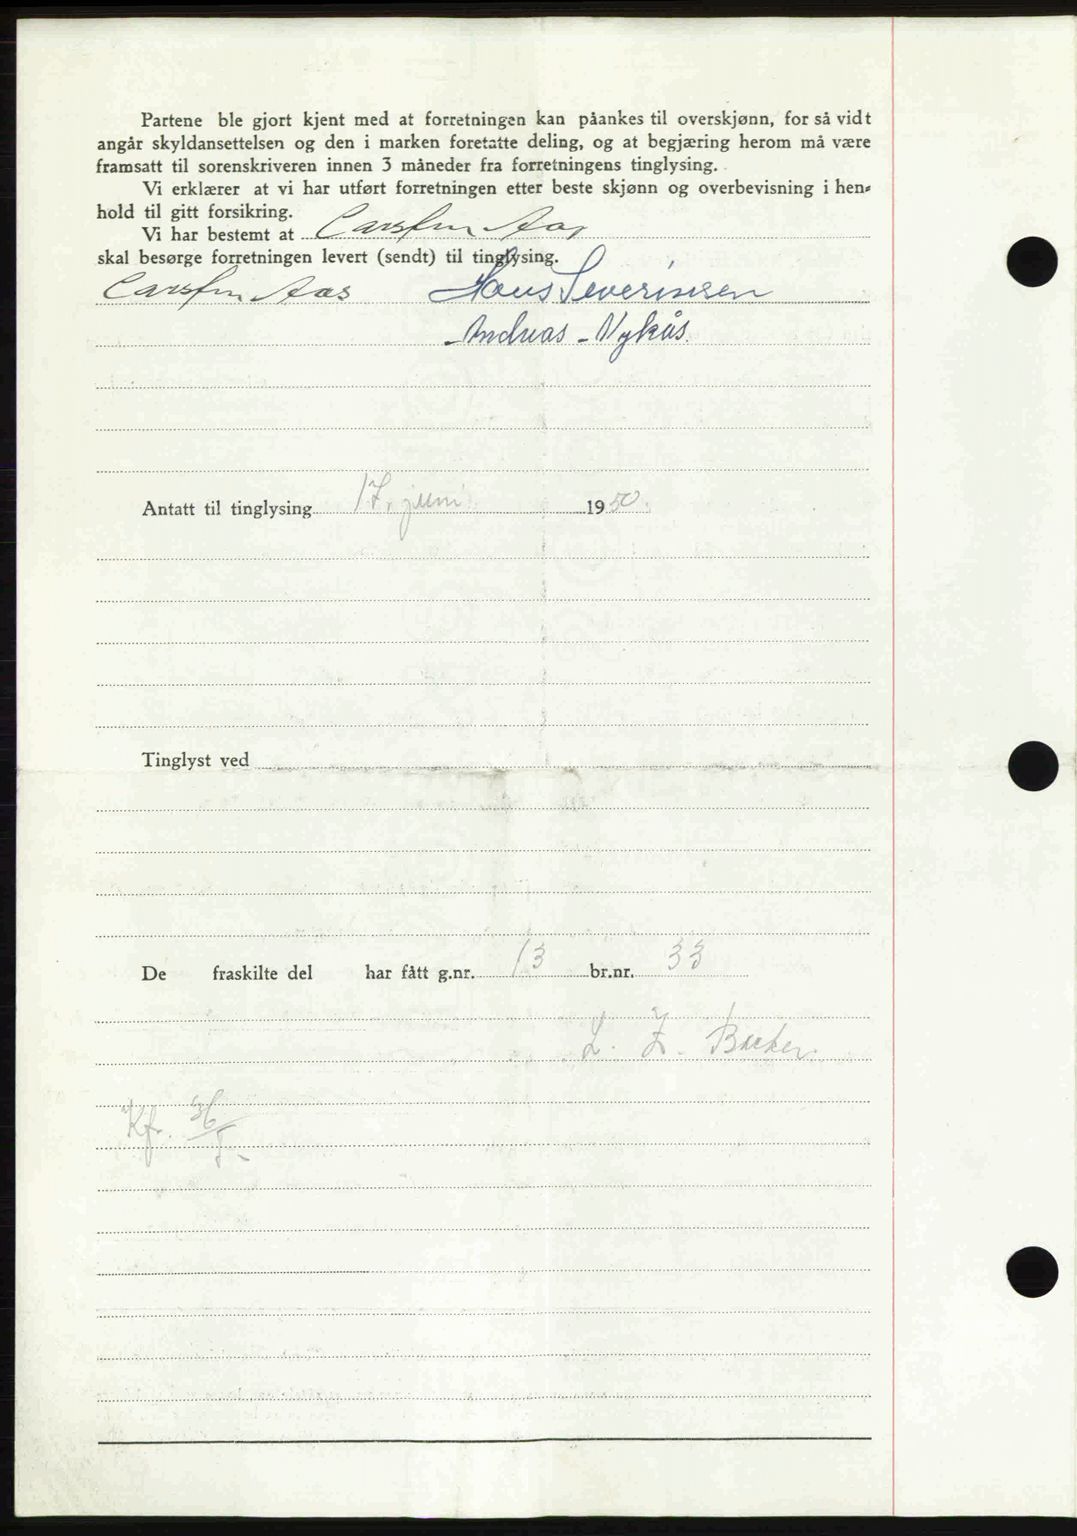 Partene ble gjort kjent med at forretningen kan påankes til overskjønn, for så vidt
angår skyldansettelsen og den i marken foretatte deling, og at begjæring herom må være
framsatt til sorenskriveren innen 3 måneder fra forretningens tinglysing.
Vi erklærer at vi har utført forretningen etter beste skjønn og overbevisning i hen-
hold til gitt forsikring.
Vi har bestemt at Carsten Aas
skal besørge forretningen levert (sendt) til tinglysing.
Carsten Aas Hans Severinsen
Andreas Nykås.
Antatt til tinglysing 17. juni 1950.
Tinglyst ved
De fraskilte del har fått g.nr. 13 br.nr. 33
L. Z. Backer
Kf. 36/5-